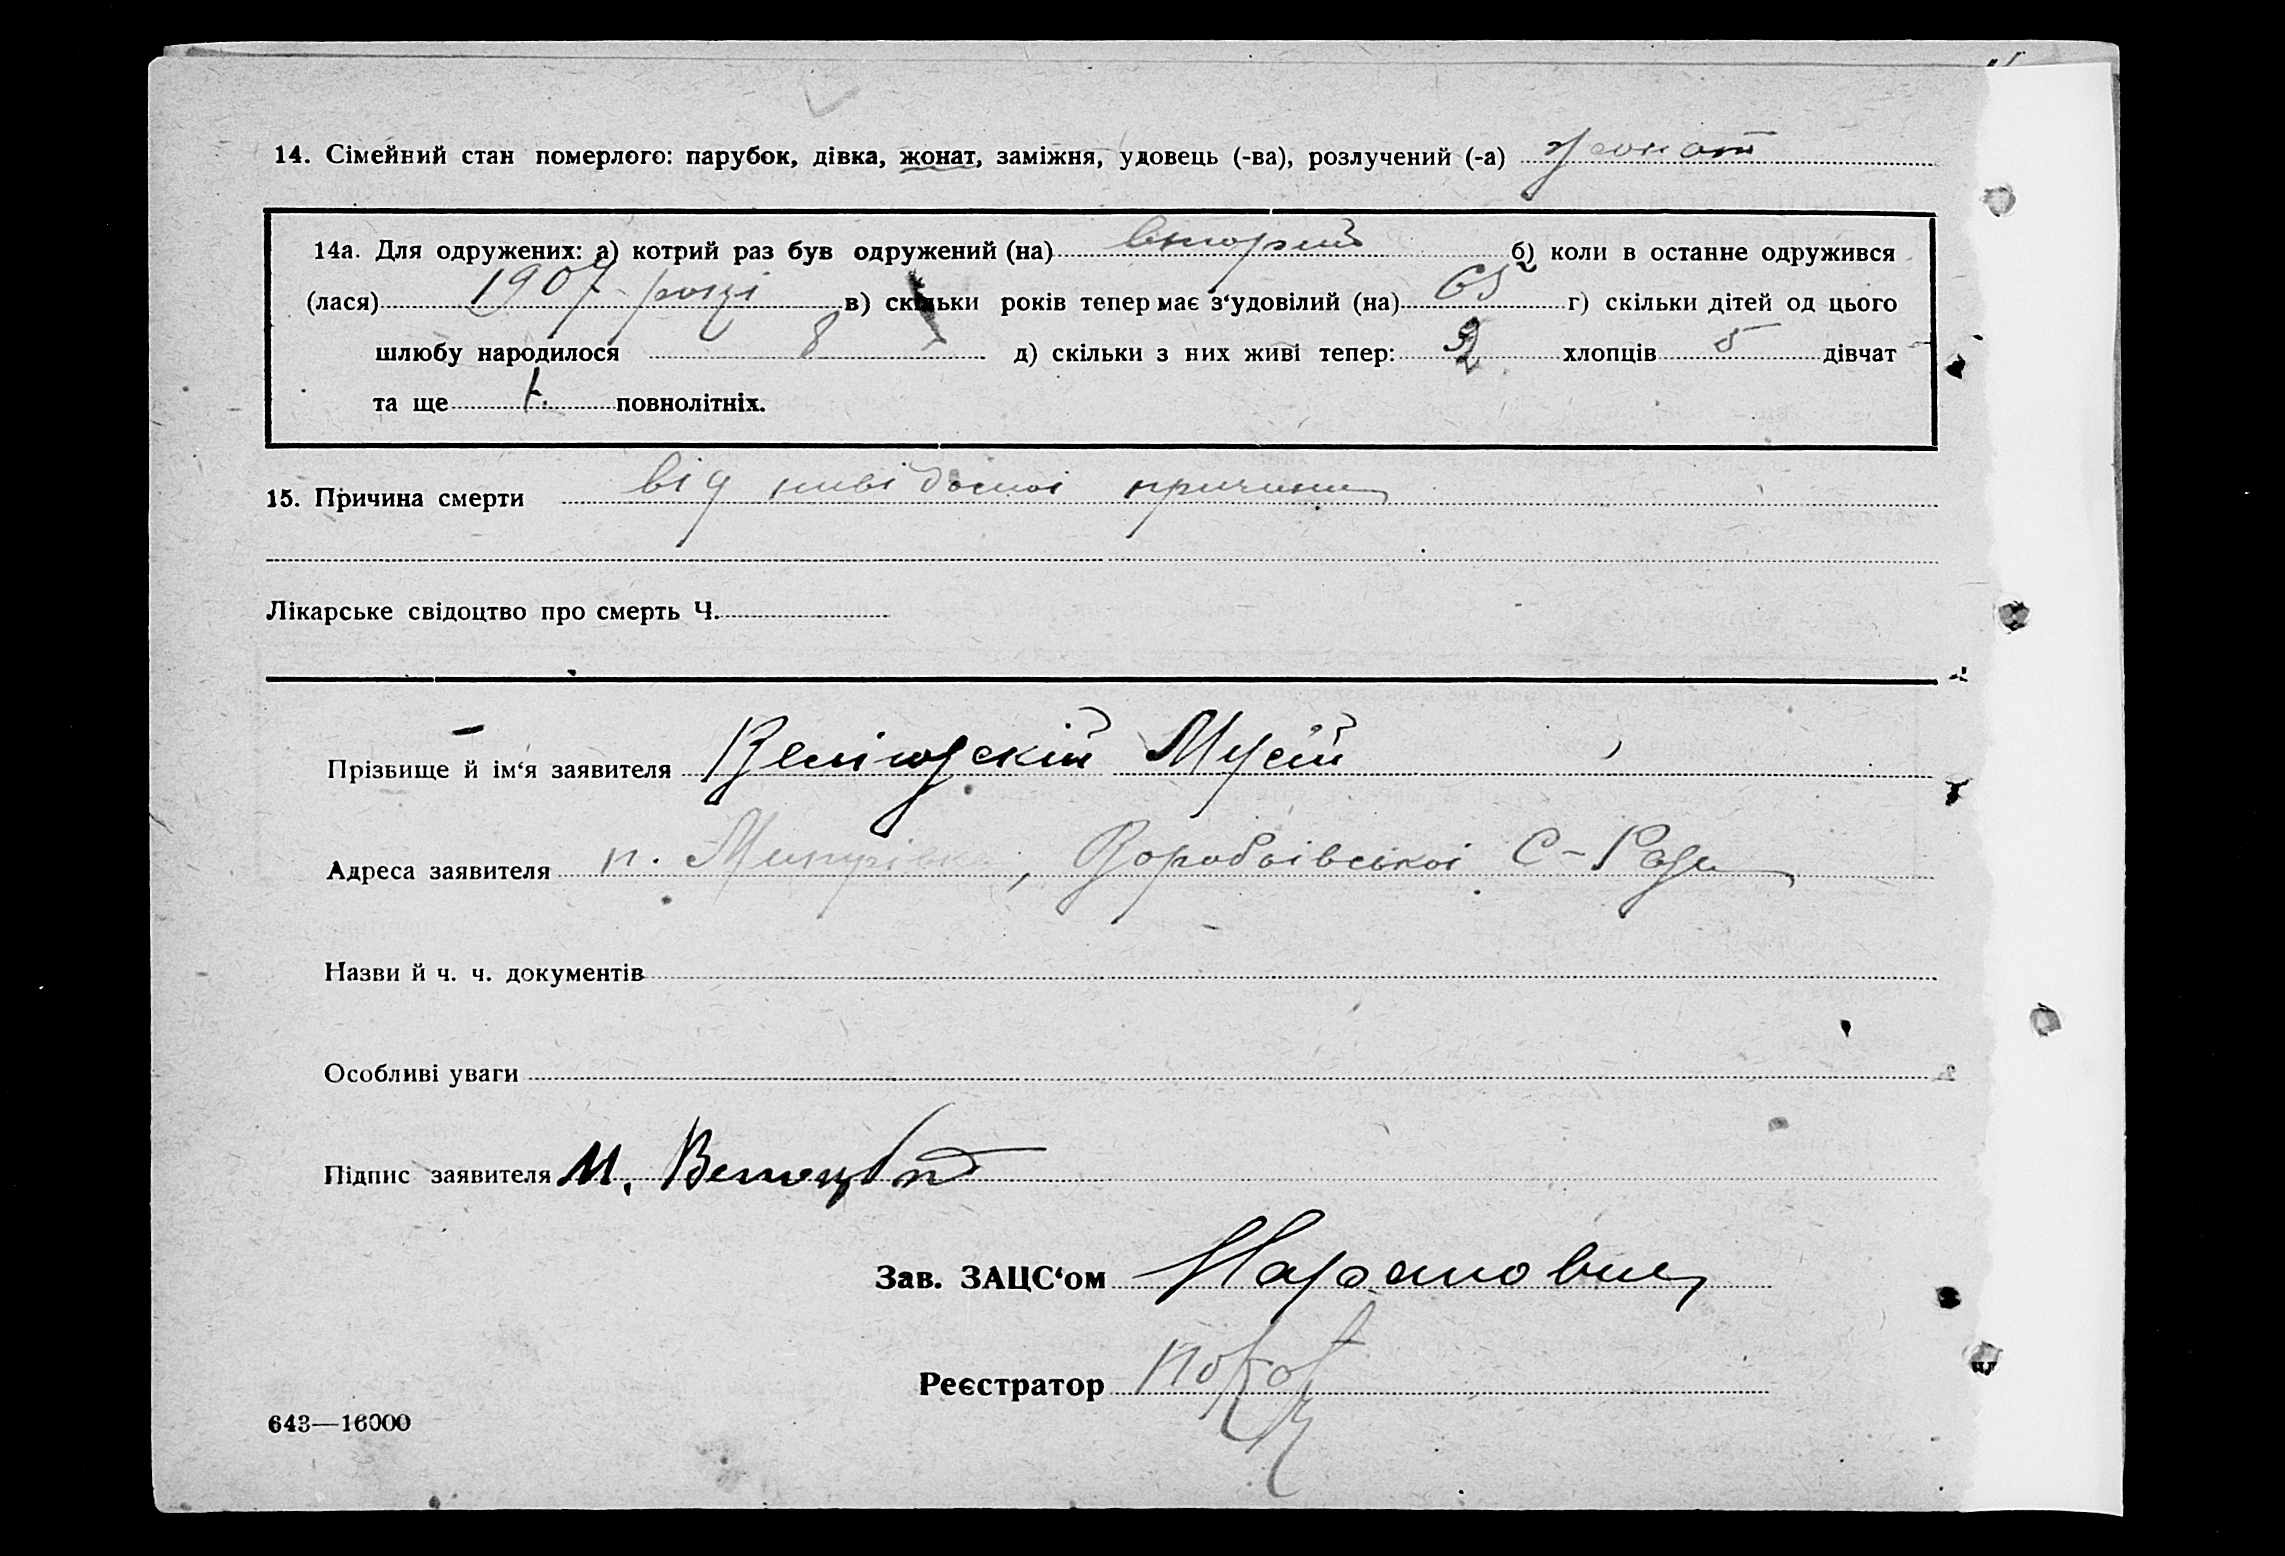 14. Сімейний стан померлого: парубок, дівка, жонат, заміжня, удовець (-ва), розлучений (-а) жонат
14а. Для одружених: а) котрий раз був одружений (на) вторий б) коли в останне одружився
(лася) 1907 році в) скільки років тепер має з‘удовілий (на) 65 г) скільки дітей од цього
шлюбу народилося 8 д) скільки з них живі тепер: 2 хлопців 5 дівчат
та ще повнолітніх.
15. Причина смерти від невідомої причини
Лікарське свідоцтво про смерть Ч.
Прізвище й ім‘я заявителя Велігорскій Мусій
Адреса заявителя п. , Воробіївської С-Ради
Назви й ч. ч. документів
Особливі уваги
Підпис заявителя М.
Зав. ЗАЦС‘ом
Реєстратор
643—16000